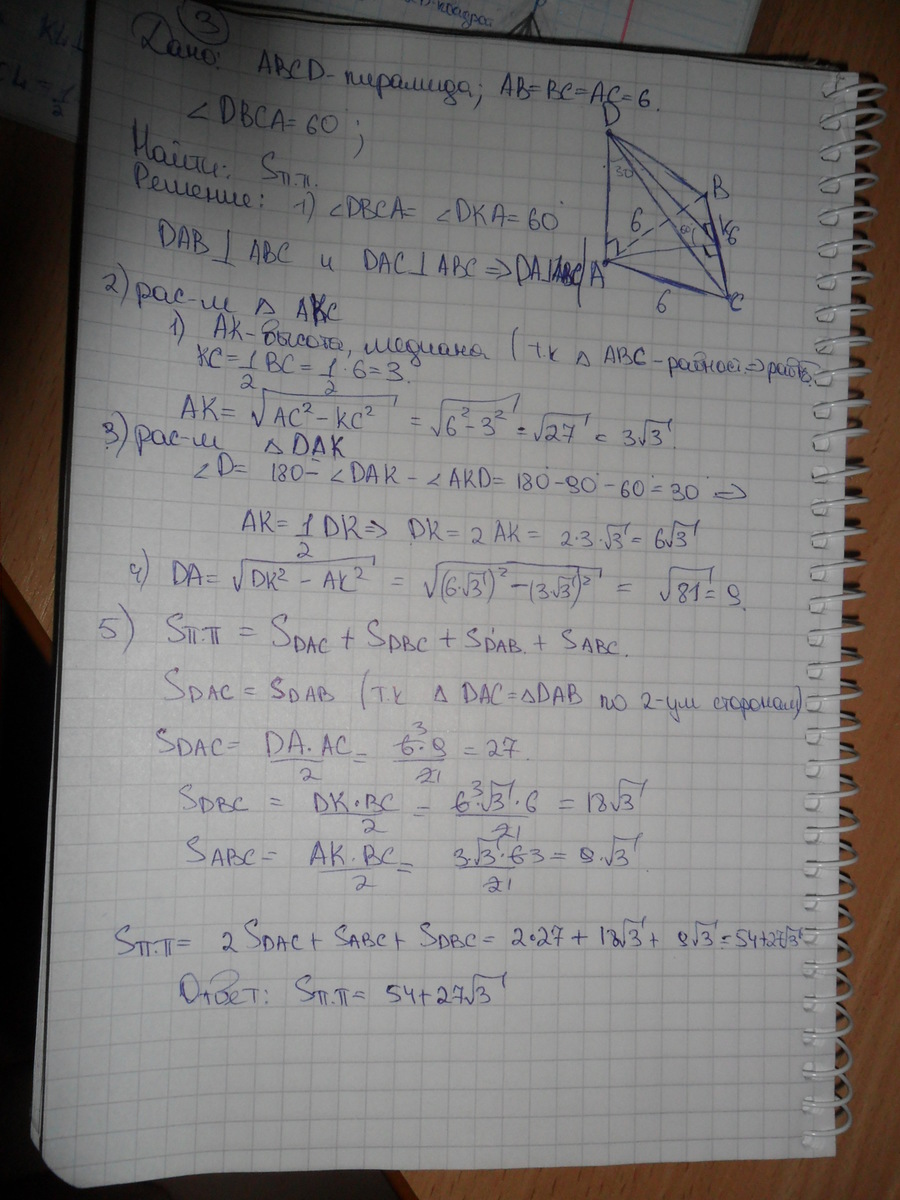 3
Дано: ABCD-пирамида; AB=BC=AC=6.
∠DBCA=60°;
Найти: Sп.п.
Решение: 1) ∠DBCA= ∠DKA=60°
DAB⊥ABC и DAC⊥ABC⇒DA⊥ABC
D
30
B
6
60
K
6
A
6
C
2) рас-м △ AKC
1) AK-высота, медиана (т.к △ ABC-равност⇒равтб.
KC=1/2 BC=1/2·6=3.
AK= √AC²-KC² = √6²-3² = √27 = 3√3.
3) рас-м △DAK
∠D= 180-∠DAK-∠AKD=180°-90°-60°=30°⇒
AK=1/2 DK⇒ DK=2AK= 2·3·√3=6√3
4) DA=√DK²-AK² = √(6·√3)²-(3√3)² = √81=9.
5) Sп.п = SDAC+SDBC+SDAB.+SABC.
SDAC=SDAB (т.к △ DAC=△DAB по 2-ум сторонам)
SDAC= DA·AC/2 = 6³·9/21 = 27.
SDBC = DK·BC/2 = 6³√3·6/21 = 18√3
SABC= AK·BC/2 = 3·√3·63/21 = 9·√3
Sп.п= 2SDAC+SABC+SDBC=2·27+18√3+9√3=54+27√3
Ответ: Sп.п= 54+27√3